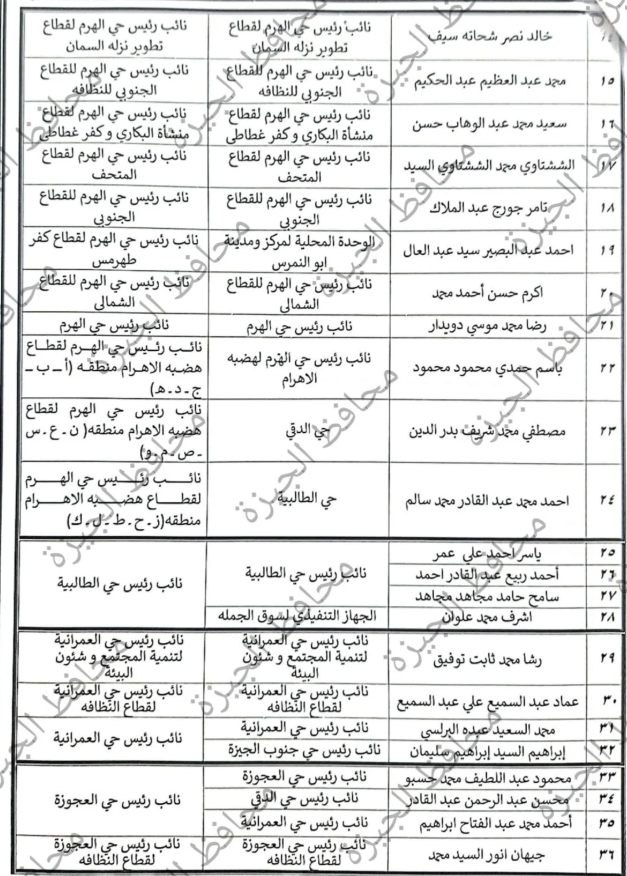 ١٤ خالد نصر شحاته سيف نائب رئيس حي الهرم لقطاع تطوير نزله السمان نائب رئيس حي الهرم لقطاع تطوير نزله السمان
١٥ محمد عبد العظيم عبد الحكيم نائب رئيس حي الهرم للقطاع الجنوبي للنظافه نائب رئيس حي الهرم للقطاع الجنوبي للنظافه
١٦ سعيد محمد عبد الوهاب حسن نائب رئيس حي الهرم لقطاع منشأة البكاري و كفر غطاطى نائب رئيس حي الهرم لقطاع منشأة البكاري و كفر غطاطى
١٧ الششتاوي محمد الششتاوي السيد نائب رئيس حي الهرم لقطاع المتحف نائب رئيس حي الهرم لقطاع المتحف
١٨ تامر جورج عبد الملاك نائب رئيس حي الهرم للقطاع الجنوبي نائب رئيس حي الهرم للقطاع الجنوبي
١٩ احمد عبد البصير سيد عبد العال الوحدة المحلية لمركز ومدينة ابو النمرس نائب رئيس حي الهرم لقطاع كفر طهرمس
٢٠ اكرم حسن أحمد محمد نائب رئيس حي الهرم للقطاع الشمالي نائب رئيس حي الهرم للقطاع الشمالي
٢١ رضا محمد موسي دويدار نائب رئيس حي الهرم نائب رئيس حي الهرم
٢٢ باسم حمدي محمود محمود نائب رئيس حي الهرم لهضبه الاهرام نائب رئيس حي الهرم لقطاع هضبه الاهرام منطقه (أ ـ ب ـ ج ـ د ـ هـ)
٢٣ مصطفي محمد شريف بدر الدين حي الدقي نائب رئيس حي الهرم لقطاع هضبه الاهرام منطقه( ن ـ ع ـ س ـ ص ـ م ـ و)
٢٤ احمد محمد عبد القادر محمد سالم حي الطالبية نائب رئيس حي الهرم لقطاع هضبه الاهرام منطقه(ز ـ ح ـ ط ـ ل ـ ك)
٢٥ ياسر احمد علي عمر نائب رئيس حي الطالبية نائب رئيس حي الطالبية
٢٦ أحمد ربيع عبد القادر احمد
٢٧ سامح حامد مجاهد مجاهد
٢٨ اشرف محمد علوان الجهاز التنفيذي لسوق الجمله
٢٩ رشا محمد ثابت توفيق نائب رئيس حي العمرانية لتنمية المجتمع و شئون البيئة نائب رئيس حي العمرانية لتنمية المجتمع و شئون البيئة
٣٠ عماد عبد السميع علي عبد السميع نائب رئيس حي العمرانية لقطاع النظافه نائب رئيس حي العمرانية لقطاع النظافه
٣١ محمد السعيد عبده البرلسي نائب رئيس حي العمرانية نائب رئيس حي العمرانية
٣٢ إبراهيم السيد إبراهيم سليمان نائب رئيس حي جنوب الجيزة
٣٣ محمود عبد اللطيف محمد حسبو نائب رئيس حي العجوزة نائب رئيس حي العجوزة
٣٤ محسن عبد الرحمن عبد القادر نائب رئيس حي الدقي
٣٥ أحمد محمد عبد الفتاح ابراهيم نائب رئيس حي العمرانية
٣٦ جيهان انور السيد محمد نائب رئيس حي العجوزة لقطاع النظافه نائب رئيس حي العجوزة لقطاع النظافه
محافظ الجيزة